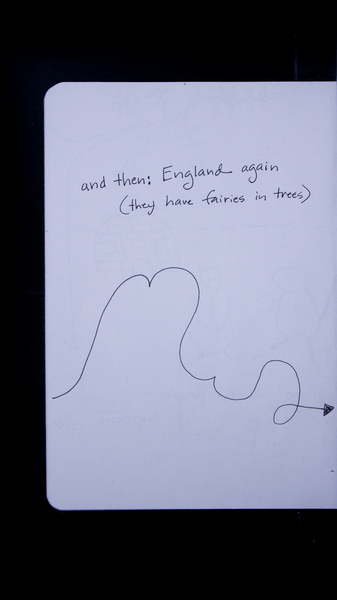 and then: England again
(they have fairies in trees)